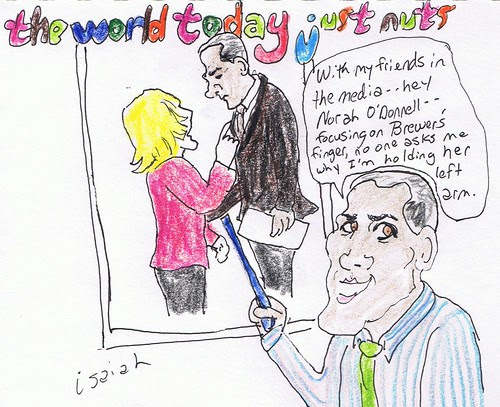 the world today just nuts
"With my friends in
the media--hey
Norah O'Donnell--,
focusing on Brewer's
finger, no one asks me
why I'm holding her
left
arm.
isaiah